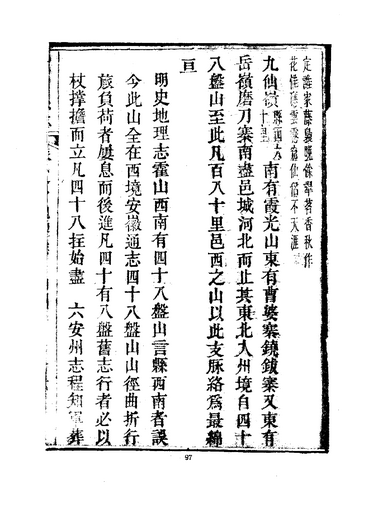 定誰家藤裊
花佳
九仙嶺縣西六十里南有霞光山東有曹婆寨鐃鈸寨又東有
岳嶺磨刀寨南盡邑城河北而止其東北入州境自四十
八盤山至此凡百八十里邑西之山以此支脉絡爲最綿
亘
明史地理志霍山西南有四十八盤山言縣西南者誤
今此山全在西境安徽通志四十八盤山山徑曲折行
旅負荷者屢息而後進凡四十有八盤舊志行者必以
杖撐擔而立凡四十八拄始盡 六安州志程知軍葬
97